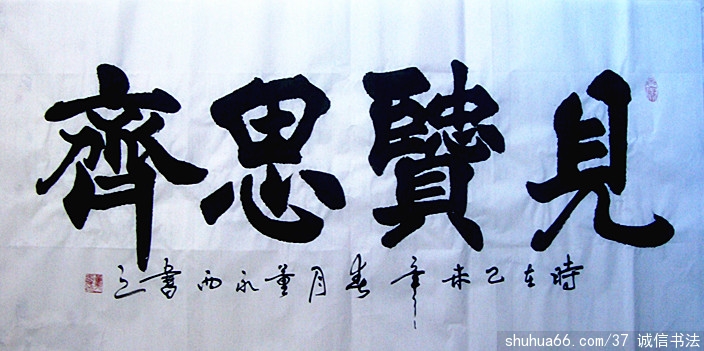 見賢思齊
時在己未年春月董永西書之
shuhua66.com/37 诚信书法